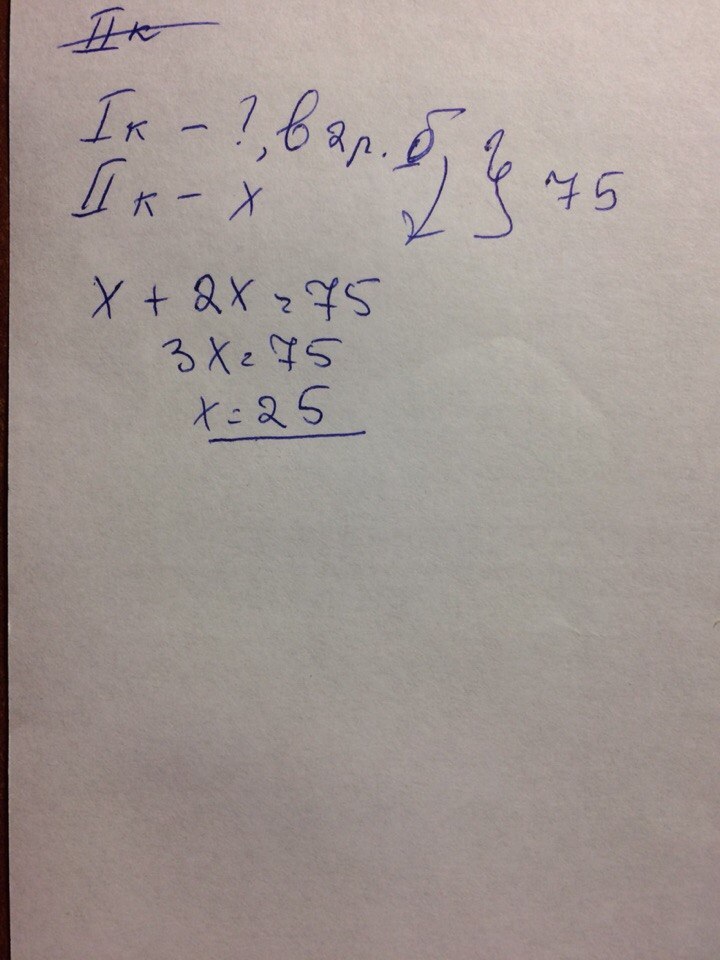 II к
I к - ?, в 2 р. б } 75
II к - x
x + 2x = 75
3x = 75
x = 25